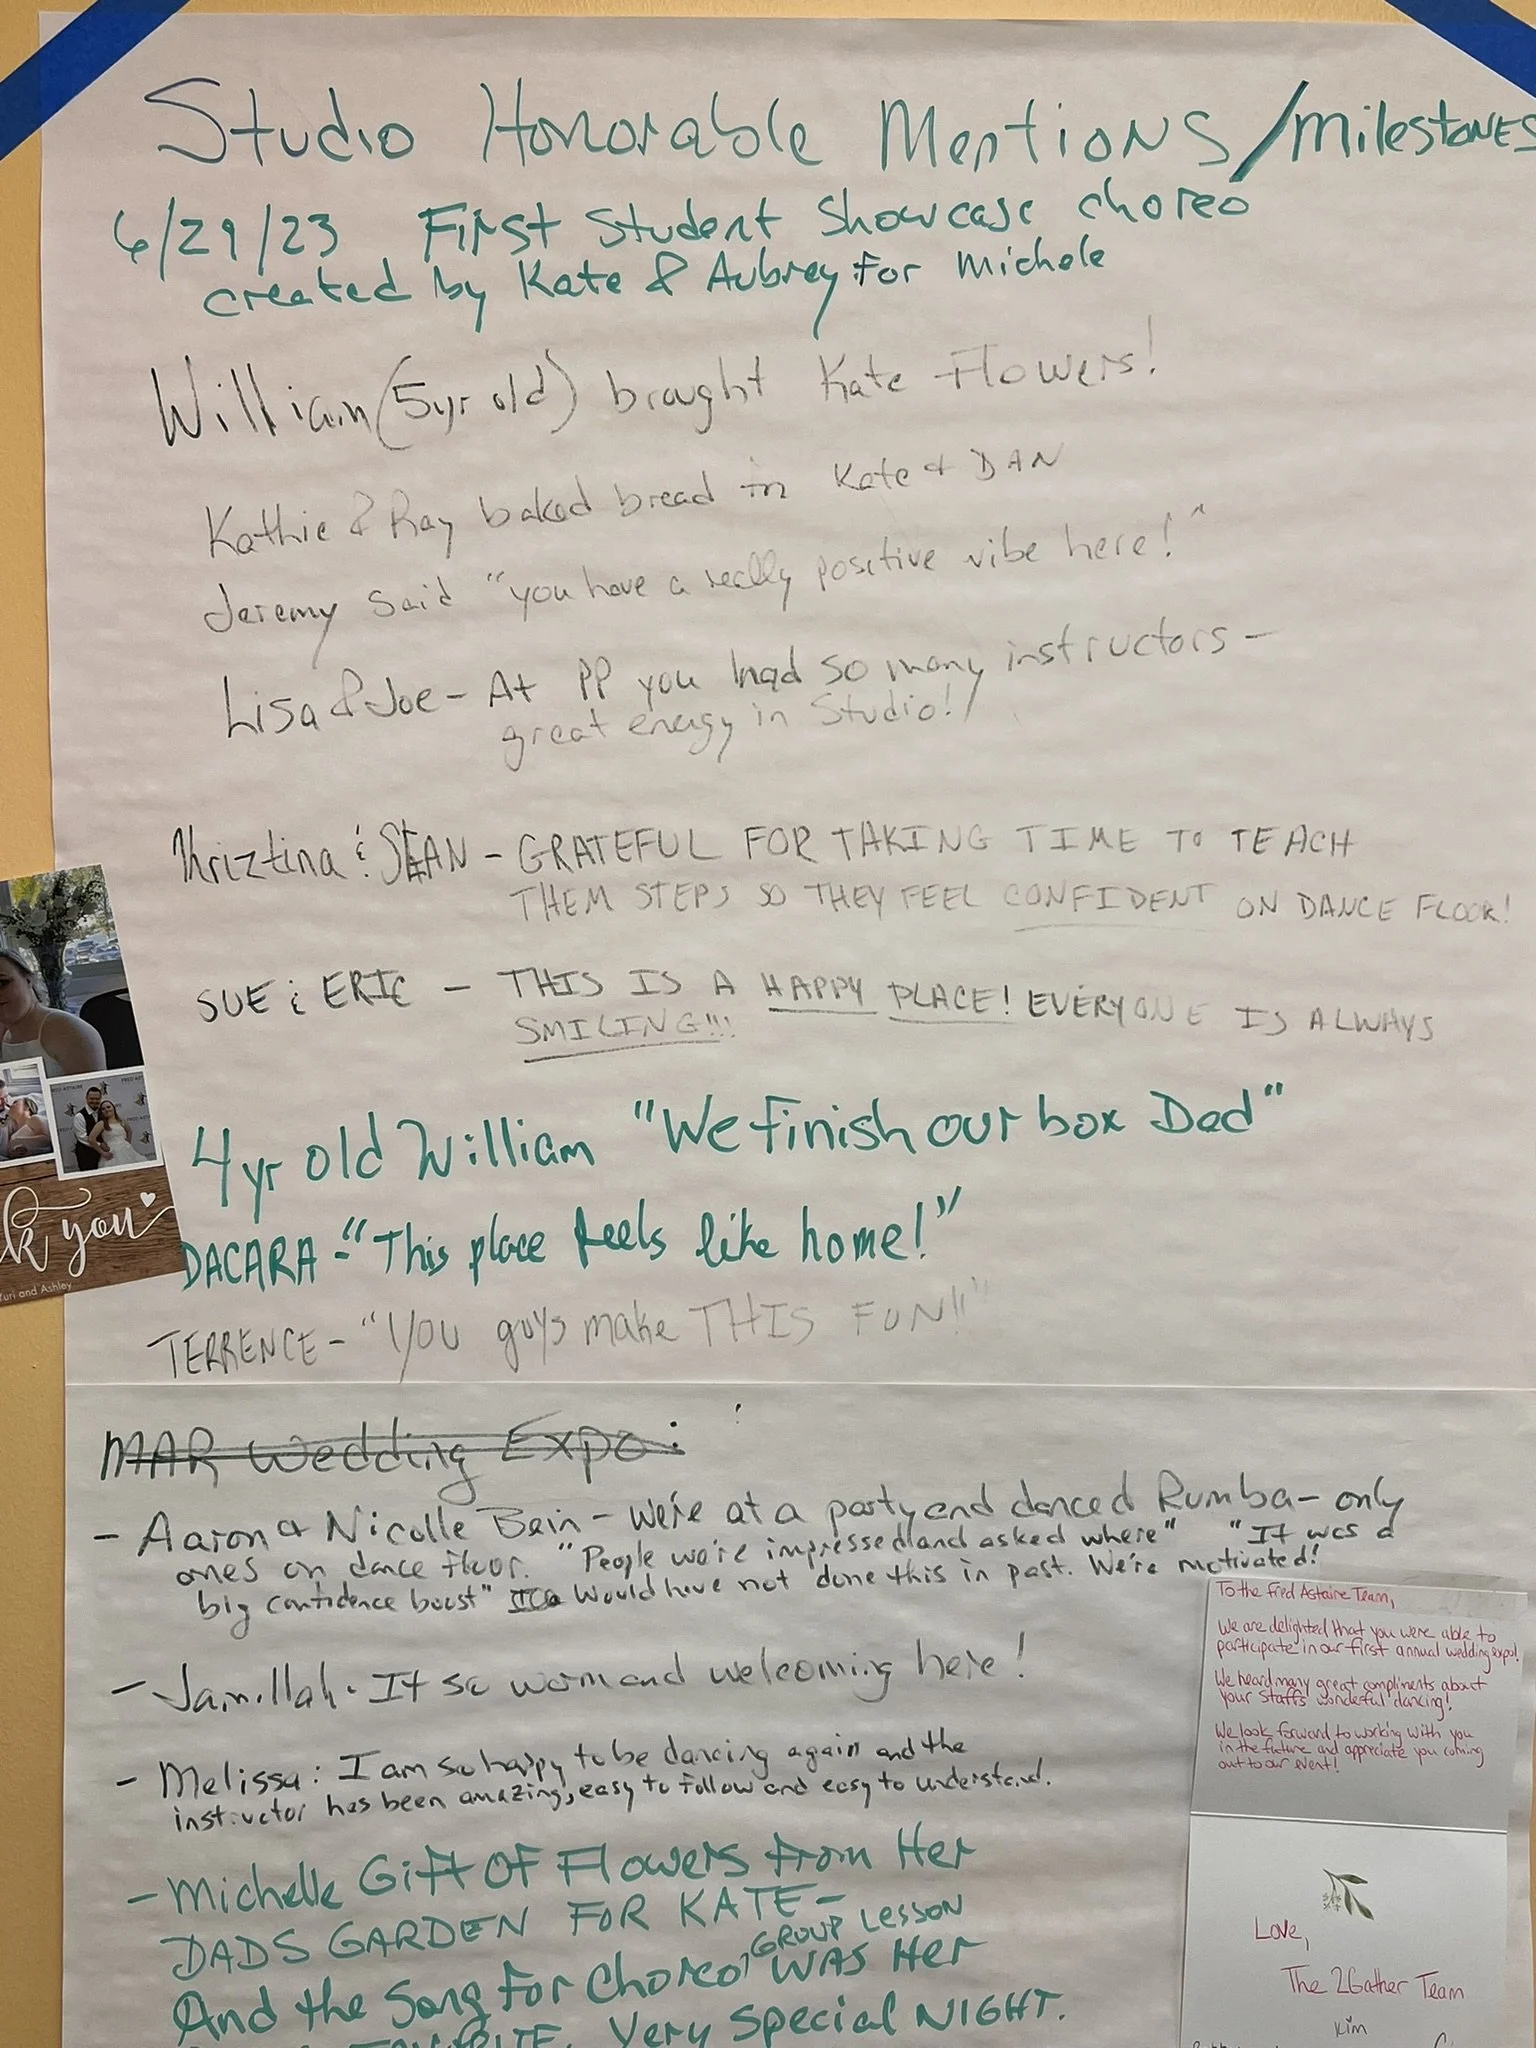 Studio Honorable Mentions/Milestones
6/29/23 First Student Showcase choreo
created by Kate & Aubrey for Michele
William (5yr old) brought Kate Flowers!
Kathie & Ray baked bread in Kate & DAN
Jeremy said "you have a really positive vibe here!"
Lisa & Joe - At PP you had so many instructors -
great energy in Studio!
Kriztina & SEAN - GRATEFUL FOR TAKING TIME TO TEACH
THEM STEPS SO THEY FEEL CONFIDENT ON DANCE FLOOR!
SUE & ERIC - THIS IS A HAPPY PLACE! EVERYONE IS ALWAYS
SMILING!!!
4yr old William "We finish our box Dad"
DACARA - "This place feels like home!"
TERRENCE - "YOU guys make THIS FUN!!"
MAR Wedding Expo:
- Aaron & Nicolle Bain - We're at a party and danced Rumba - only
ones on dance floor. "People we're impressed and asked where" "It was a
big confidence boost" Would have not done this in past. We're motivated!
- Jamillah - It so warm and welcoming here!
- Melissa: I am so happy to be dancing again and the
instructor has been amazing, easy to follow and easy to understand.
- Michelle Gift OF Flowers From Her
DADS GARDEN FOR KATE -
And the Song For Choreo, GROUP LESSON WAS Her
FAVORITE. Very Special NIGHT.
k you
Yuri and Ashley
FRED ASTAIRE
To the Fred Astaire Team,
We are delighted that you were able to
participate in our first annual wedding expo!
We heard many great compliments about
your staffs wonderful dancing!
We look forward to working with you
in the future and appreciate you coming
out to our event!
Love,
The 2Gather Team
Kim